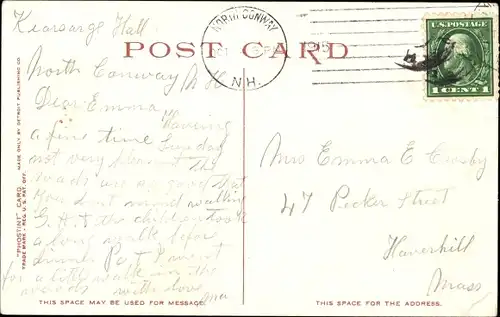 Kearsarge Hall
POST CARD
NORTH CONWAY
1915
N.H.
U.S. POSTAGE
1 CENT 1
North Conway N H
Dear Emma
Having
a fine time Sunday
not very pleasant the
roads are so good that
you don't mind walking
G.A.T. the children took
a long walk before
dinner Pa & I went
for a little walk in the
woods with love Ma
Mrs Emma E Crosby
47 Pecker Street
Haverhill
Mass
"PHOSTINT" CARD MADE ONLY BY DETROIT PUBLISHING CO.
TRADE MARK - REG. U.S. PAT. OFF.
THIS SPACE MAY BE USED FOR MESSAGE.
THIS SPACE FOR THE ADDRESS.